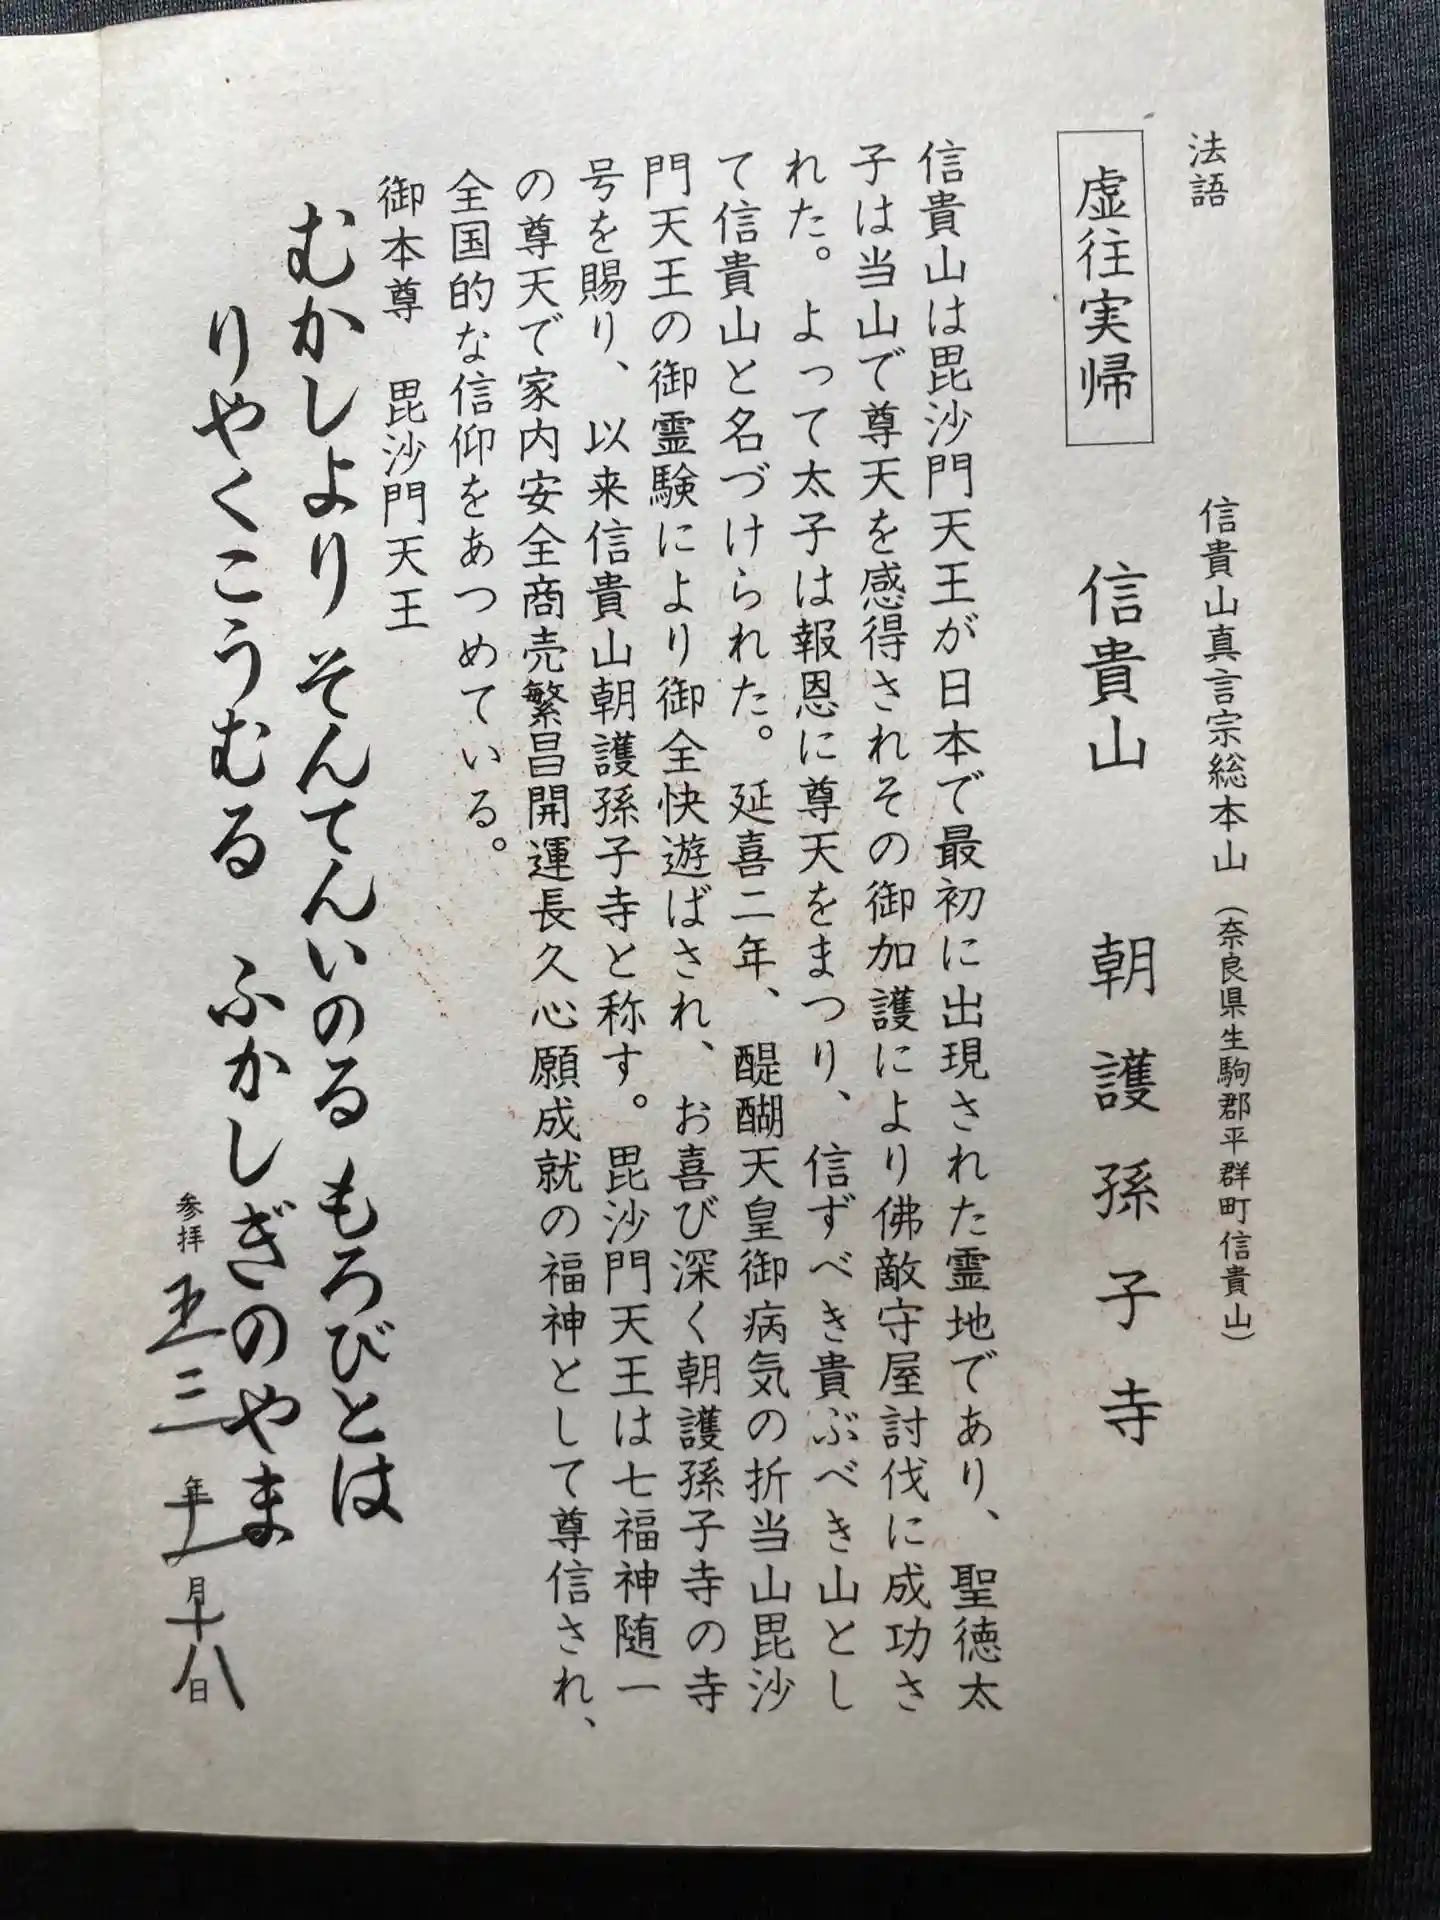 法語
信貴山真言宗総本山（奈良県生駒郡平群町信貴山）
虚往実帰
信貴山　朝護孫子寺
信貴山は毘沙門天王が日本で最初に出現された霊地であり、聖徳太
子は当山で尊天を感得されその御加護により佛敵守屋討伐に成功さ
れた。よって太子は報恩に尊天をまつり、信ずべき貴ぶべき山とし
て信貴山と名づけられた。延喜二年、醍醐天皇御病気の折当山毘沙
門天王の御霊験により御全快遊ばされ、お喜び深く朝護孫子寺の寺
号を賜り、以来信貴山朝護孫子寺と称す。毘沙門天王は七福神随一
の尊天で家内安全商売繁昌開運長久心願成就の福神として尊信され、
全国的な信仰をあつめている。
御本尊　毘沙門天王
むかしより そんてんいのる もろびとは
りやくこうむる ふかしぎのやま
参拝 三年 月十八日